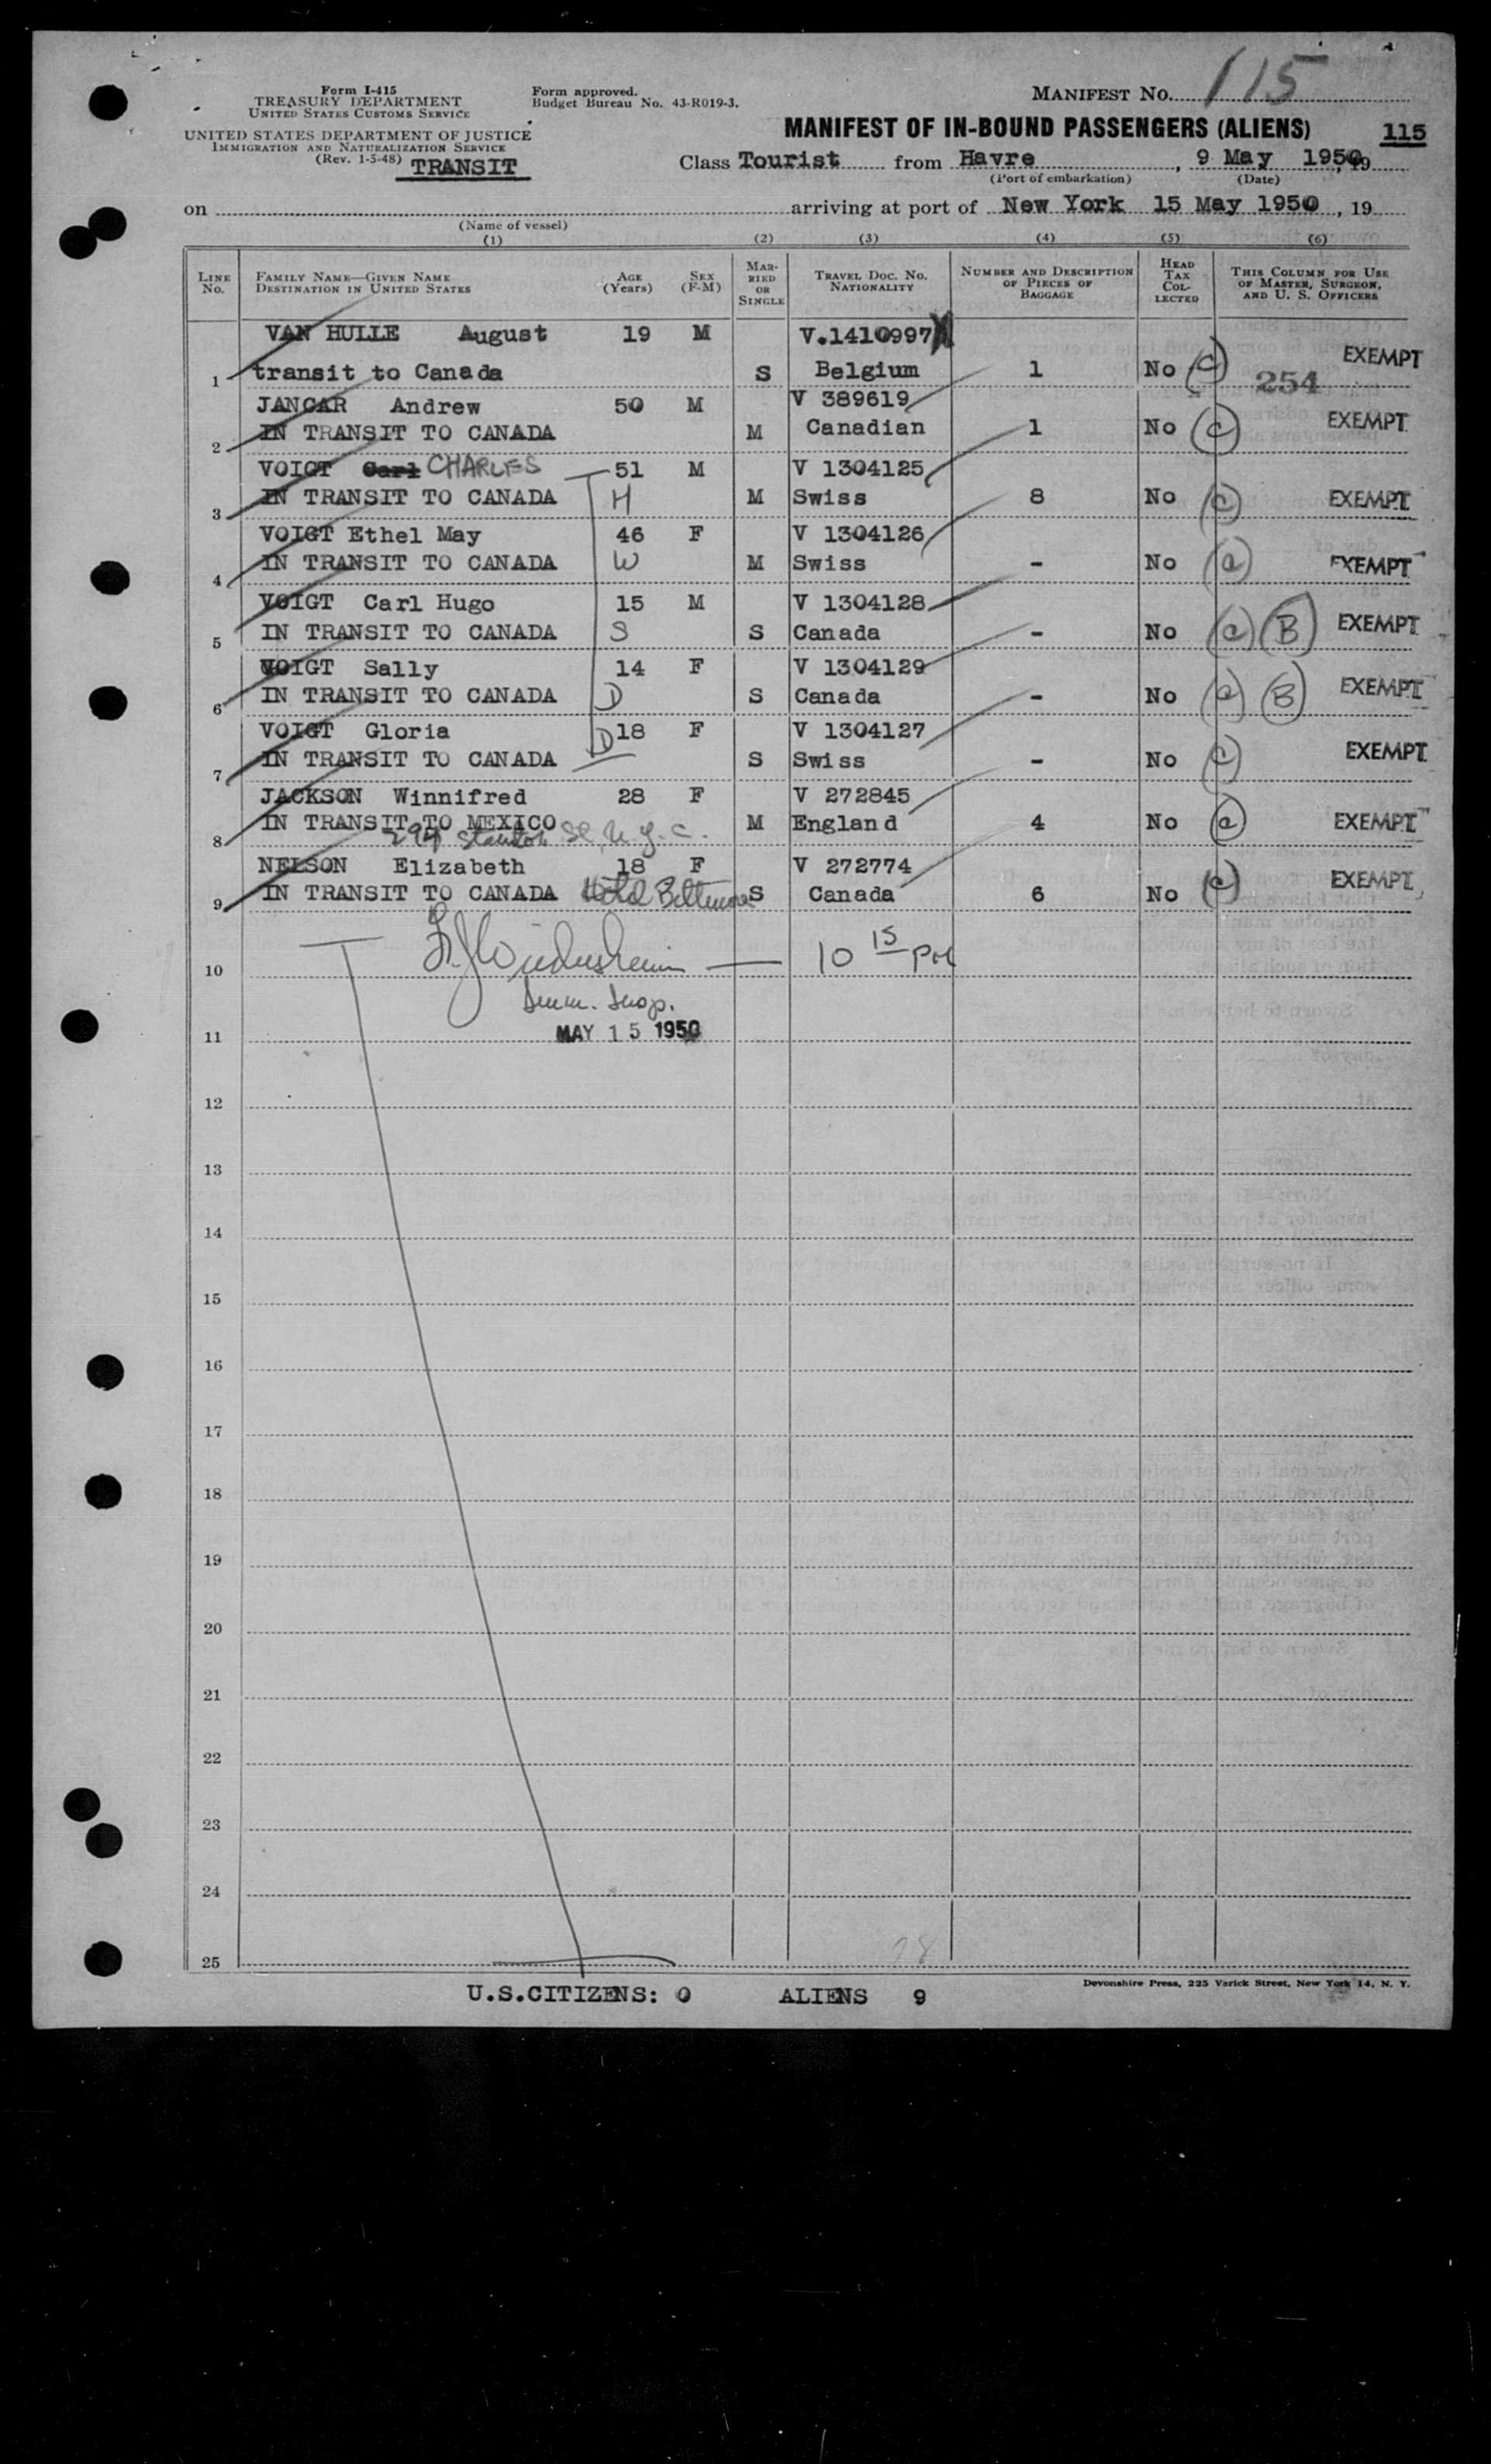 Form I-415
TREASURY DEPARTMENT
UNITED STATES CUSTOMS SERVICE
UNITED STATES DEPARTMENT OF JUSTICE
IMMIGRATION AND NATURALIZATION SERVICE
(Rev. 1-5-48) TRANSIT
Form approved.
Budget Bureau No. 43-R019-3.
MANIFEST NO. 115
MANIFEST OF IN-BOUND PASSENGERS (ALIENS) 115
Class Tourist from Havre, 9 May 1950, 19
(Port of embarkation) (Date)
on arriving at port of New York 15 May 1950, 19
(Name of vessel)
(1) (2) (3) (4) (5) (6)
LINE NO. FAMILY NAME—GIVEN NAME DESTINATION IN UNITED STATES AGE (Years) SEX (F-M) MARRIED OR SINGLE TRAVEL DOC. NO. NATIONALITY NUMBER AND DESCRIPTION OF PIECES OF BAGGAGE HEAD TAX COLLECTED THIS COLUMN FOR USE OF MASTER, SURGEON, AND U. S. OFFICERS
VAN HULLE August 19 M V.1410997
1 transit to Canada S Belgium 1 No (c) 254 EXEMPT
JANCAR Andrew 50 M V 389619
2 IN TRANSIT TO CANADA M Canadian 1 No (c) EXEMPT
VOIGT Carl CHARLES 51 M V 1304125
3 IN TRANSIT TO CANADA H M Swiss 8 No (c) EXEMPT
VOIGT Ethel May 46 F V 1304126
4 IN TRANSIT TO CANADA W M Swiss - No (a) EXEMPT
VOIGT Carl Hugo 15 M V 1304128
5 IN TRANSIT TO CANADA S S Canada - No (a) (B) EXEMPT
VOIGT Sally 14 F V 1304129
6 IN TRANSIT TO CANADA D S Canada - No (a) (B) EXEMPT
VOIGT Gloria D 18 F V 1304127
7 IN TRANSIT TO CANADA S Swiss - No (c) EXEMPT
JACKSON Winnifred 28 F V 272845
8 IN TRANSIT TO MEXICO M England 4 No (a) EXEMPT
294 Stanton St, N.Y.C.
NELSON Elizabeth 18 F V 272774
9 IN TRANSIT TO CANADA Hotel Biltmore S Canada 6 No (c) EXEMPT
10 10 15 PM
Imm. Insp.
11 MAY 15 1950
12
13
14
15
16
17
18
19
20
21
22
23
24
25
U.S.CITIZENS: 0 ALIENS 9
Devonshire Press, 225 Varick Street, New York 14, N. Y.